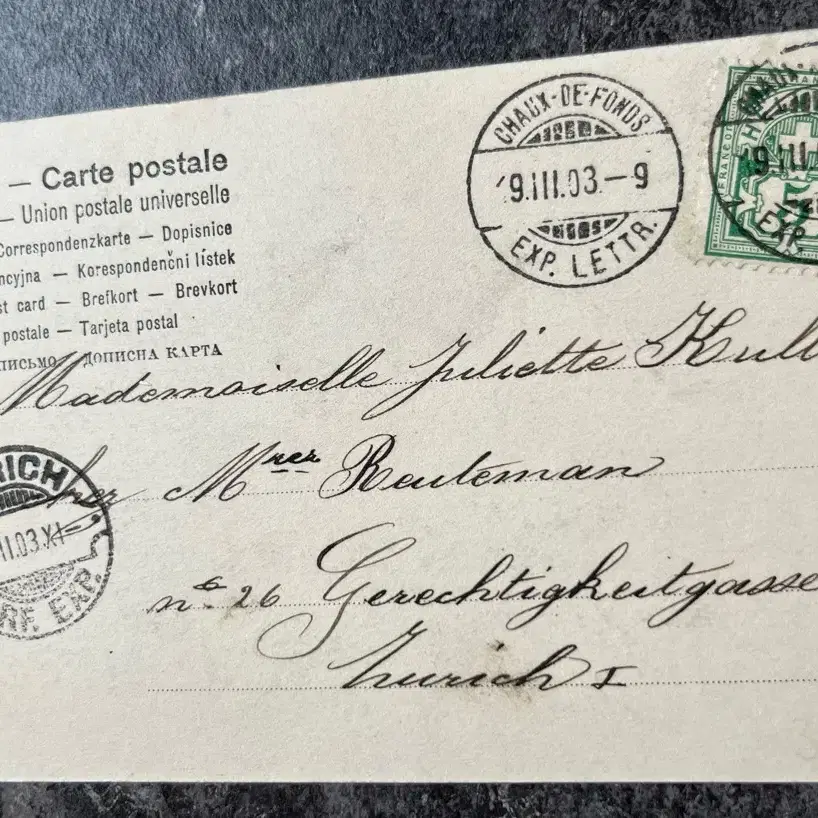 — Carte postale
— Union postale universelle
Correspondenzkarte — Dopisnice
ncyjna — Korespondenční lístek
st card — Brefkort — Brevkort
postale — Tarjeta postal
письмо дописна карта
CHAUX-DE-FONDS
9.III.03.—9
EXP. LETTR.
9.III
EXP.
FRANCO
Mademoiselle Juliette Kull
chez Mrer Reuteman
RICH
II.03.XI—
RF. EXP.
no 26 Gerechtigkeitgasse
Zurich I